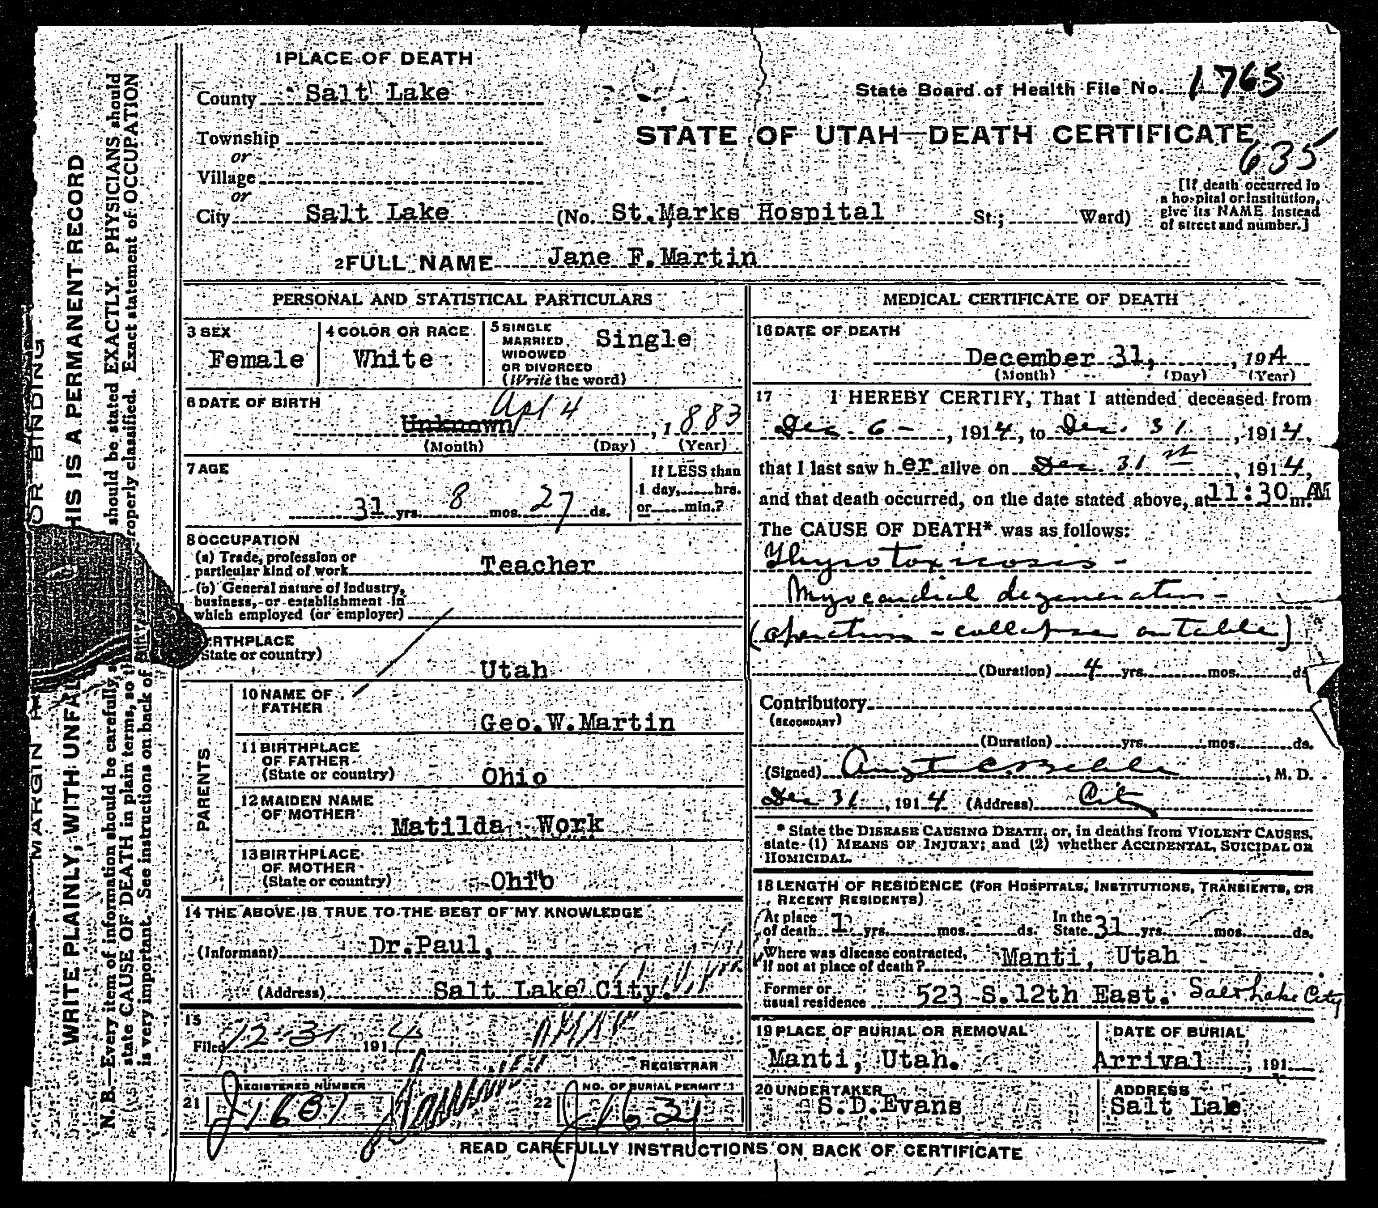 1 PLACE OF DEATH
County Salt Lake
State Board of Health File No. 1765
Township
or
Village
or
City Salt Lake (No. St.Marks Hospital St.; Ward)
STATE OF UTAH—DEATH CERTIFICATE
635
[If death occurred in
a hospital or institution,
give its NAME instead
of street and number.]
2 FULL NAME Jane F.Martin
PERSONAL AND STATISTICAL PARTICULARS
3 SEX
Female
4 COLOR OR RACE
White
5 SINGLE
MARRIED
WIDOWED
OR DIVORCED
(Write the word)
Single
6 DATE OF BIRTH
Unknown Apl 4, 1883
(Month) (Day) (Year)
7 AGE
31 yrs. 8 mos. 27 ds.
If LESS than
1 day, hrs.
or min.?
8 OCCUPATION
(a) Trade, profession or
particular kind of work Teacher
(b) General nature of industry,
business, or establishment in
which employed (or employer)
BIRTHPLACE
(State or country)
Utah
PARENTS
10 NAME OF
FATHER
Geo.W.Martin
11 BIRTHPLACE
OF FATHER
(State or country)
Ohio
12 MAIDEN NAME
OF MOTHER
Matilda Work
13 BIRTHPLACE
OF MOTHER
(State or country)
Ohio
14 THE ABOVE IS TRUE TO THE BEST OF MY KNOWLEDGE
(Informant) Dr.Paul,
(Address) Salt Lake City.
15
Filed 12-31 1914
REGISTRAR
21 REGISTERED NUMBER
J1637
22 NO. OF BURIAL PERMIT
J1631
MEDICAL CERTIFICATE OF DEATH
16 DATE OF DEATH
December 31, 1914
(Month) (Day) (Year)
17 I HEREBY CERTIFY, That I attended deceased from
Dec. 6 - , 1914, to Dec. 31 , 1914,
that I last saw her alive on Dec. 31st , 1914,
and that death occurred, on the date stated above, at 11:30 m. AM
The CAUSE OF DEATH* was as follows:
Thyrotoxicosis -
Myocardial degeneration -
(operation - collapse on table)
(Duration) 4 yrs. mos. ds.
Contributory
(SECONDARY)
(Duration) yrs. mos. ds.
(Signed) , M. D.
Dec 31, 1914 (Address) City
* State the DISEASE CAUSING DEATH, or, in deaths from VIOLENT CAUSES,
state (1) MEANS OF INJURY; and (2) whether ACCIDENTAL, SUICIDAL OR
HOMICIDAL.
18 LENGTH OF RESIDENCE (FOR HOSPITALS, INSTITUTIONS, TRANSIENTS, OR
RECENT RESIDENTS)
At place
of death 1 yrs. mos. ds.
In the
State 31 yrs. mos. ds.
Where was disease contracted,
if not at place of death? Manti, Utah
Former or
usual residence 523 S.12th East. Salt Lake City
19 PLACE OF BURIAL OR REMOVAL
Manti, Utah.
DATE OF BURIAL
Arrival , 191
20 UNDERTAKER
S.D.Evans
ADDRESS
Salt Lake
READ CAREFULLY INSTRUCTIONS ON BACK OF CERTIFICATE
MARGIN
FOR BINDING
WRITE PLAINLY, WITH UNFA
THIS IS A PERMANENT RECORD
N. B.—Every item of information should be carefully
should be stated EXACTLY. PHYSICIANS should
state CAUSE OF DEATH in plain terms, so
properly classified. Exact statement of OCCUPATION
is very important. See instructions on back of